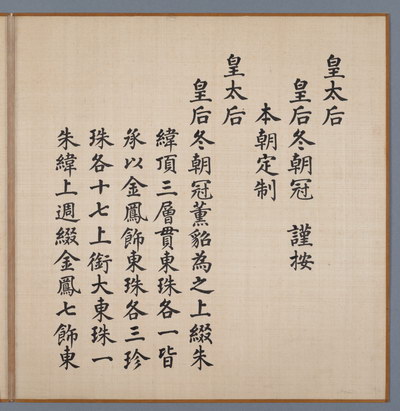 皇太后
皇后冬朝冠　謹按
本朝定制
皇太后
皇后冬朝冠薰貂為之上綴朱
緯頂三層貫東珠各一皆
承以金鳳飾東珠各三珍
珠各十七上銜大東珠一
朱緯上週綴金鳳七飾東